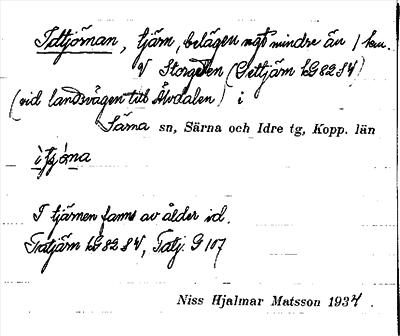 Idtjörnan, tjärn, belägen ngt mindre än 1 km.
V Storgelten (Settjärn LG82SV)
(vid landsvägen till Älvdalen) i
Särna sn, Särna och Idre tg, Kopp. län
I tjärnen fanns av ålder id.
LG82SV, Tatj. G107
Niss Hjalmar Matsson 1934.